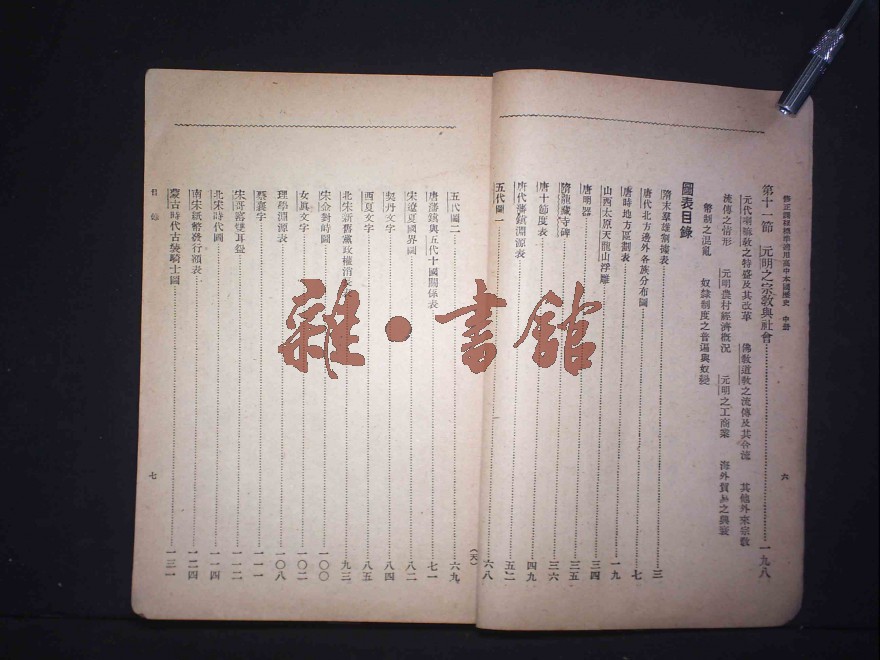 修正課程標準適用高中本國歷史 中册
六
第十一節 元明之宗教與社會 一九八
元代喇嘛教之特盛及其改革 佛教道教之流傳及其合流 其他外來宗教
流傳之情形 元明農村經濟概況 元明之工商業 海外貿易之興衰
幣制之混亂 奴隸制度之普遍與奴變
圖表目錄
隋末羣雄割據表 三
唐代北方邊外各族分布圖 七
唐時地方區劃表 一九
山西太原天龍山浮雕 三四
唐明器 三五
隋龍藏寺碑 三六
唐十節度表 四九
唐代藩鎮淵源表 五二
五代圖一 六八
(天)
五代圖二 六九
唐藩鎮與五代十國關係表 七一
宋遼夏國界圖 八二
契丹文字 八四
西夏文字 八五
北宋新舊黨政權消長 九三
宋金對峙圖 一〇〇
女真文字 一〇二
理學淵源表 一〇八
蔡襄字 一一一
宋哥窰雙耳 一一二
北宋時代圖 一一四
南宋紙幣發行額表 一二四
蒙古時代古裝騎士圖 一三一
目錄
七
雜·書館